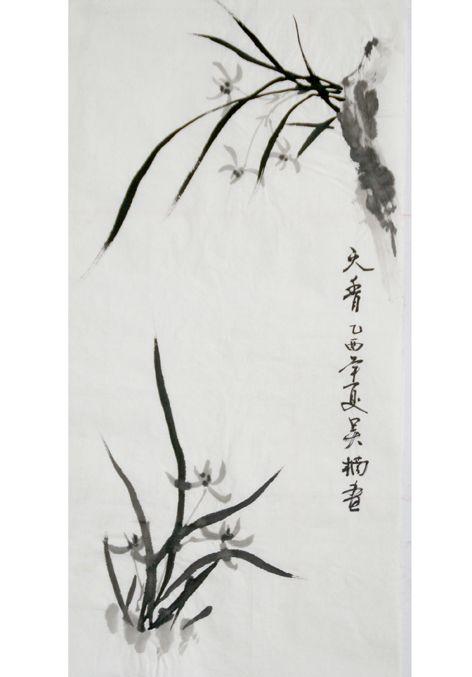 天香乙酉年夏吴楠画